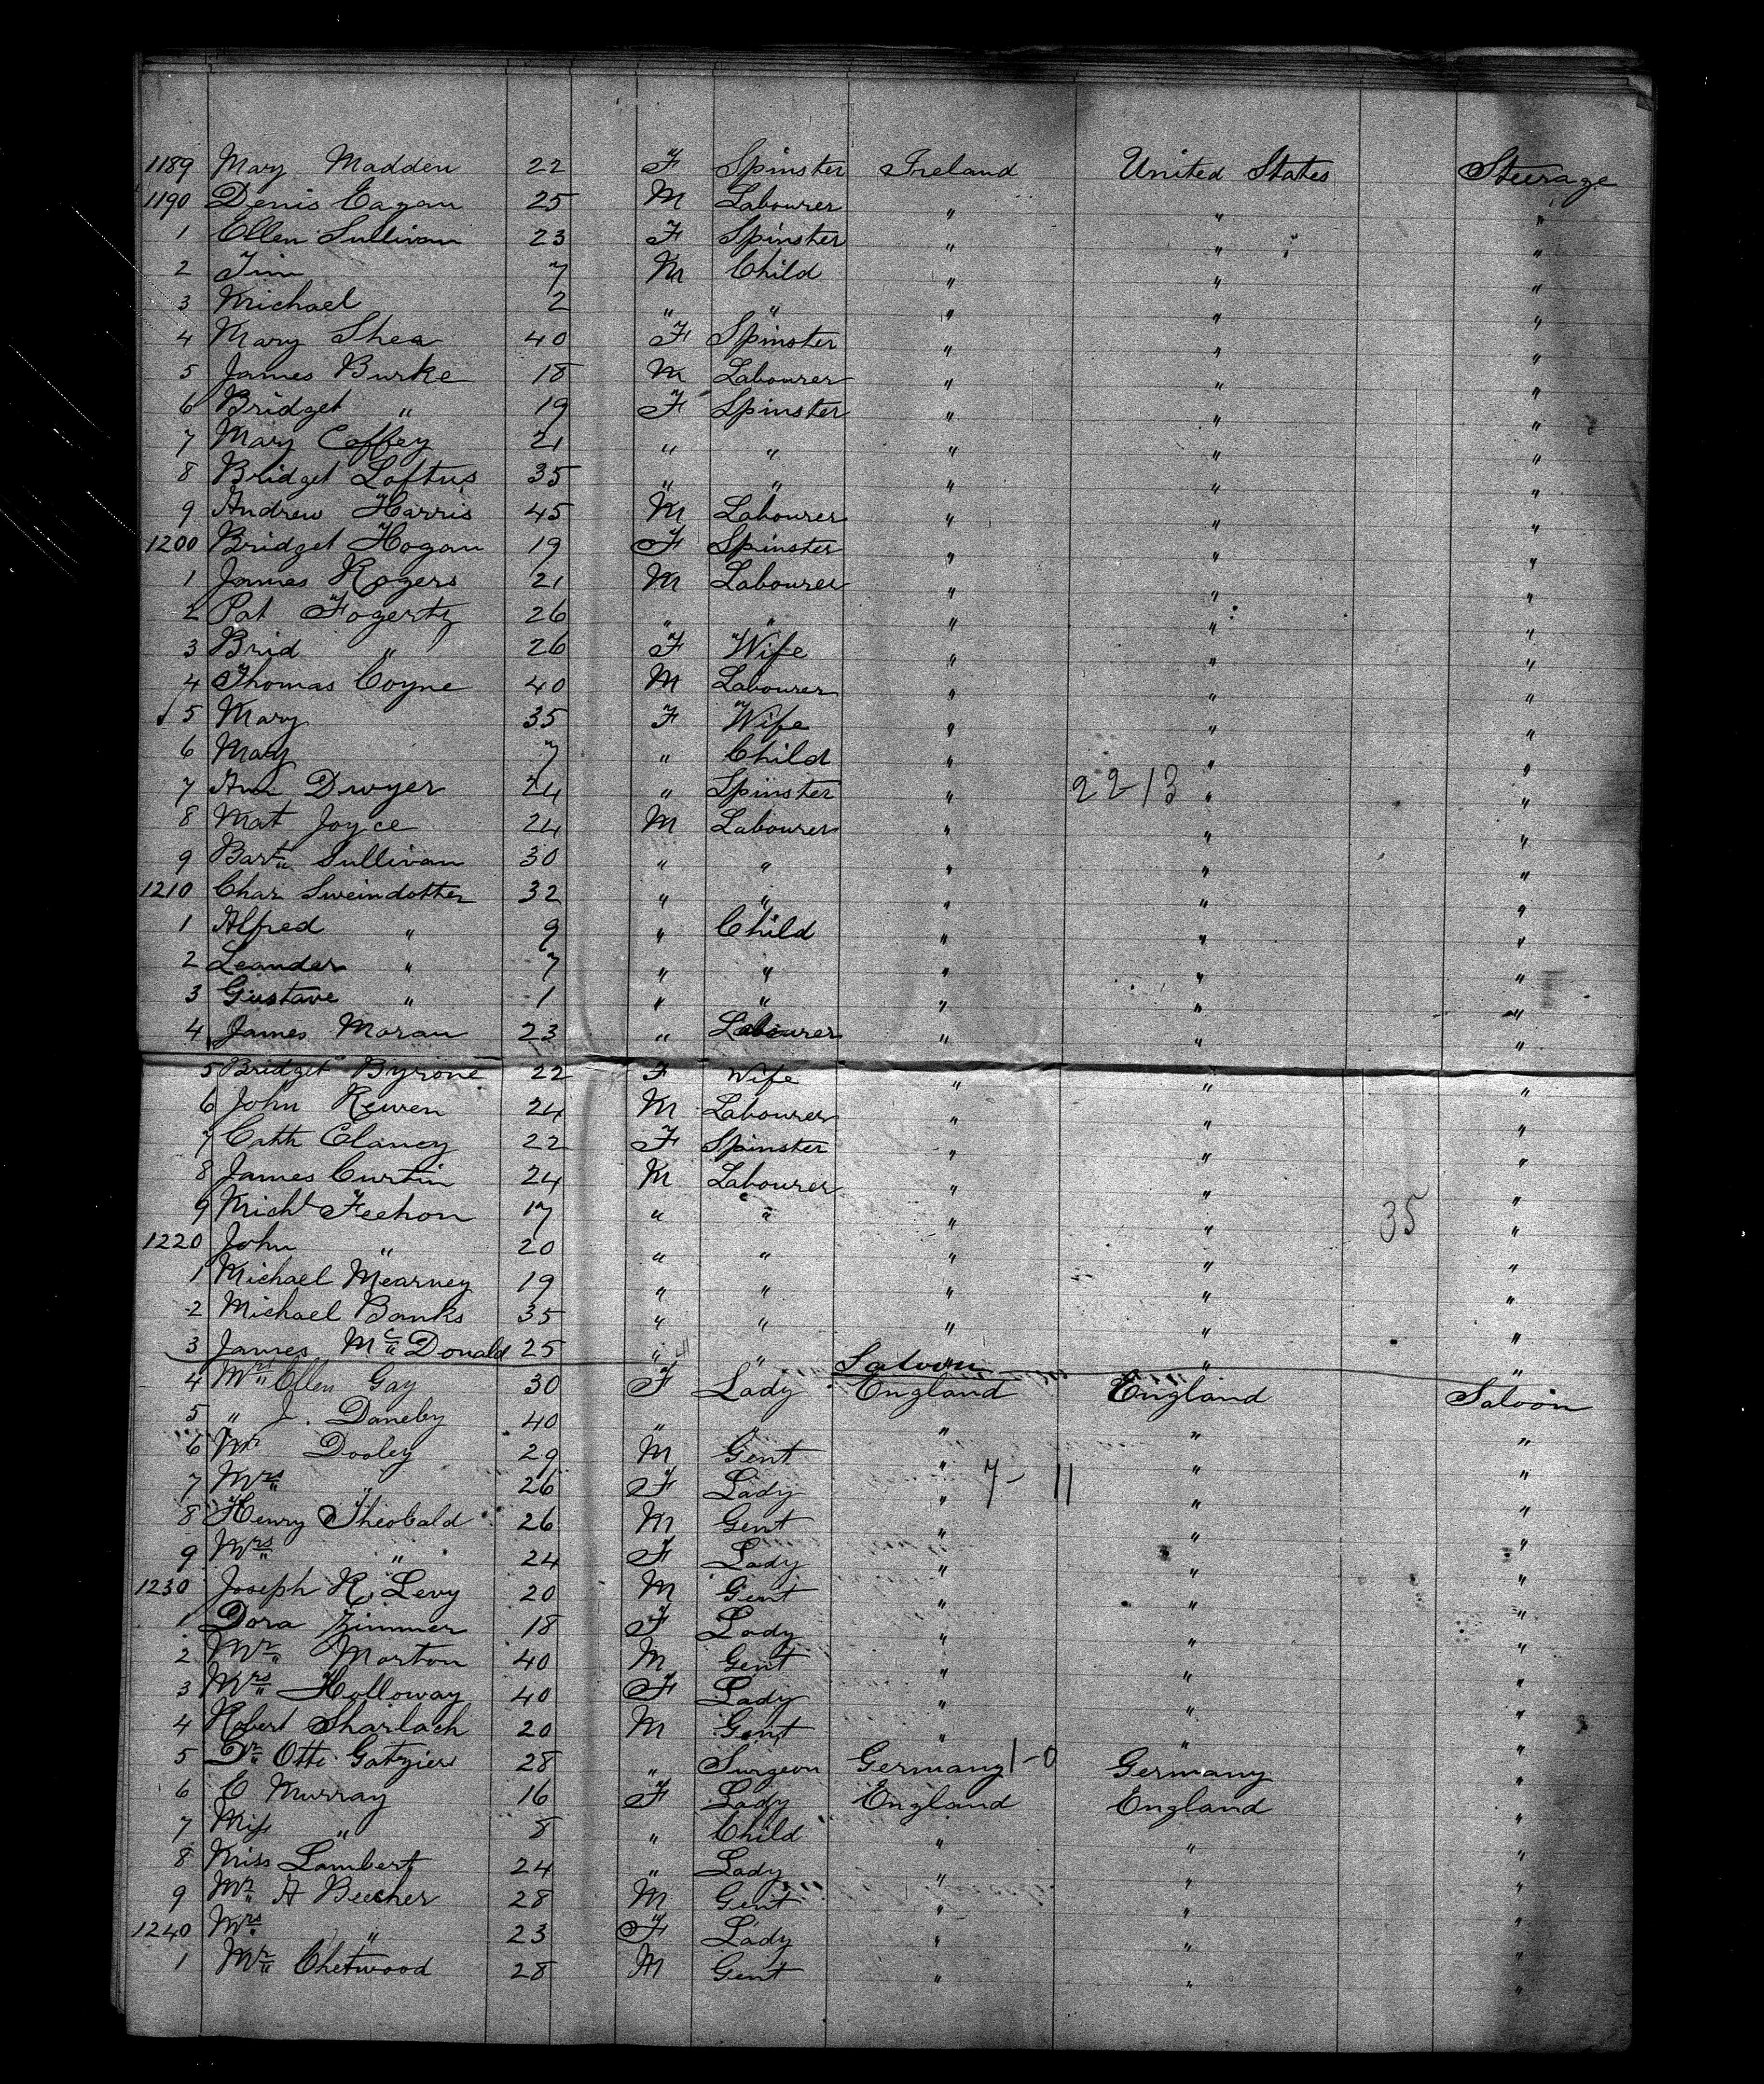 1189 Mary Madden 22 F Spinster Ireland United States Steerage
1190 Denis Eagan 25 M Labourer " " "
1 Ellen Sullivan 23 F Spinster " " "
2 Tim 7 M Child " " "
3 Michael 2 " " " " "
4 Mary Shea 40 F Spinster " " "
5 James Burke 18 M Labourer " " "
6 Bridget " 19 F Spinster " " "
7 Mary Coffey 21 " " " " "
8 Bridget Loftus 35 " " " " "
9 Andrew Harris 45 M Labourer " " "
1200 Bridget Hogan 19 F Spinster " " "
1 James Rogers 21 M Labourer " " "
2 Pat Fogerty 26 " " " " "
3 Brid " 26 F Wife " " "
4 Thomas Coyne 40 M Labourer " " "
5 Mary 35 F Wife " " "
6 Mary 7 " Child " " "
7 Ann Dwyer 24 " Spinster " 22 13 " "
8 Mat Joyce 24 M Labourer " " "
9 Bart Sullivan 30 " " " " "
1210 Char Sweindotter 32 " " " " "
1 Alfred " 9 " Child " " "
2 Leander " 7 " " " " "
3 Gustave " 1 " " " " "
4 James Moran 23 " Labourer " " "
5 Bridget Byrone 22 F Wife " " "
6 John 24 M Labourer " " "
7 Cath Clancy 22 F Spinster " " "
8 James Curtin 24 M Labourer " " "
9 Michl Feehon 17 " " " " 35 "
1220 John " 20 " " " " "
1 Michael Mearney 19 " " " " "
2 Michael Banks 35 " " " " "
3 James Mc Donald 25 " " " "
Saloon
4 Mrs Ellen Gay 30 F Lady England England Saloon
5 " J. Daneby 40 " " " " "
6 Mr Dooley 29 M Gent " " "
7 Mrs " 26 F Lady " 7 - 11 " "
8 Henry Theobald 26 M Gent " " "
9 Mrs " 24 F Lady " " "
1230 Joseph R. Levy 20 M Gent " " "
1 Dora Zimmer 18 F Lady " " "
2 Mr Morton 40 M Gent " " "
3 Mrs Holloway 40 F Lady " " "
4 Robert Sharlach 20 M Gent " " "
5 Dr Otti 28 " Surgeon Germany 1-0 Germany "
6 E Murray 16 F Lady England England "
7 Miss " 8 " Child " " "
8 Miss Lambert 24 " Lady " " "
9 Mr A Beecher 28 M Gent " " "
1240 Mrs " 23 F Lady " " "
1 Mr Chetwood 28 M Gent " " "